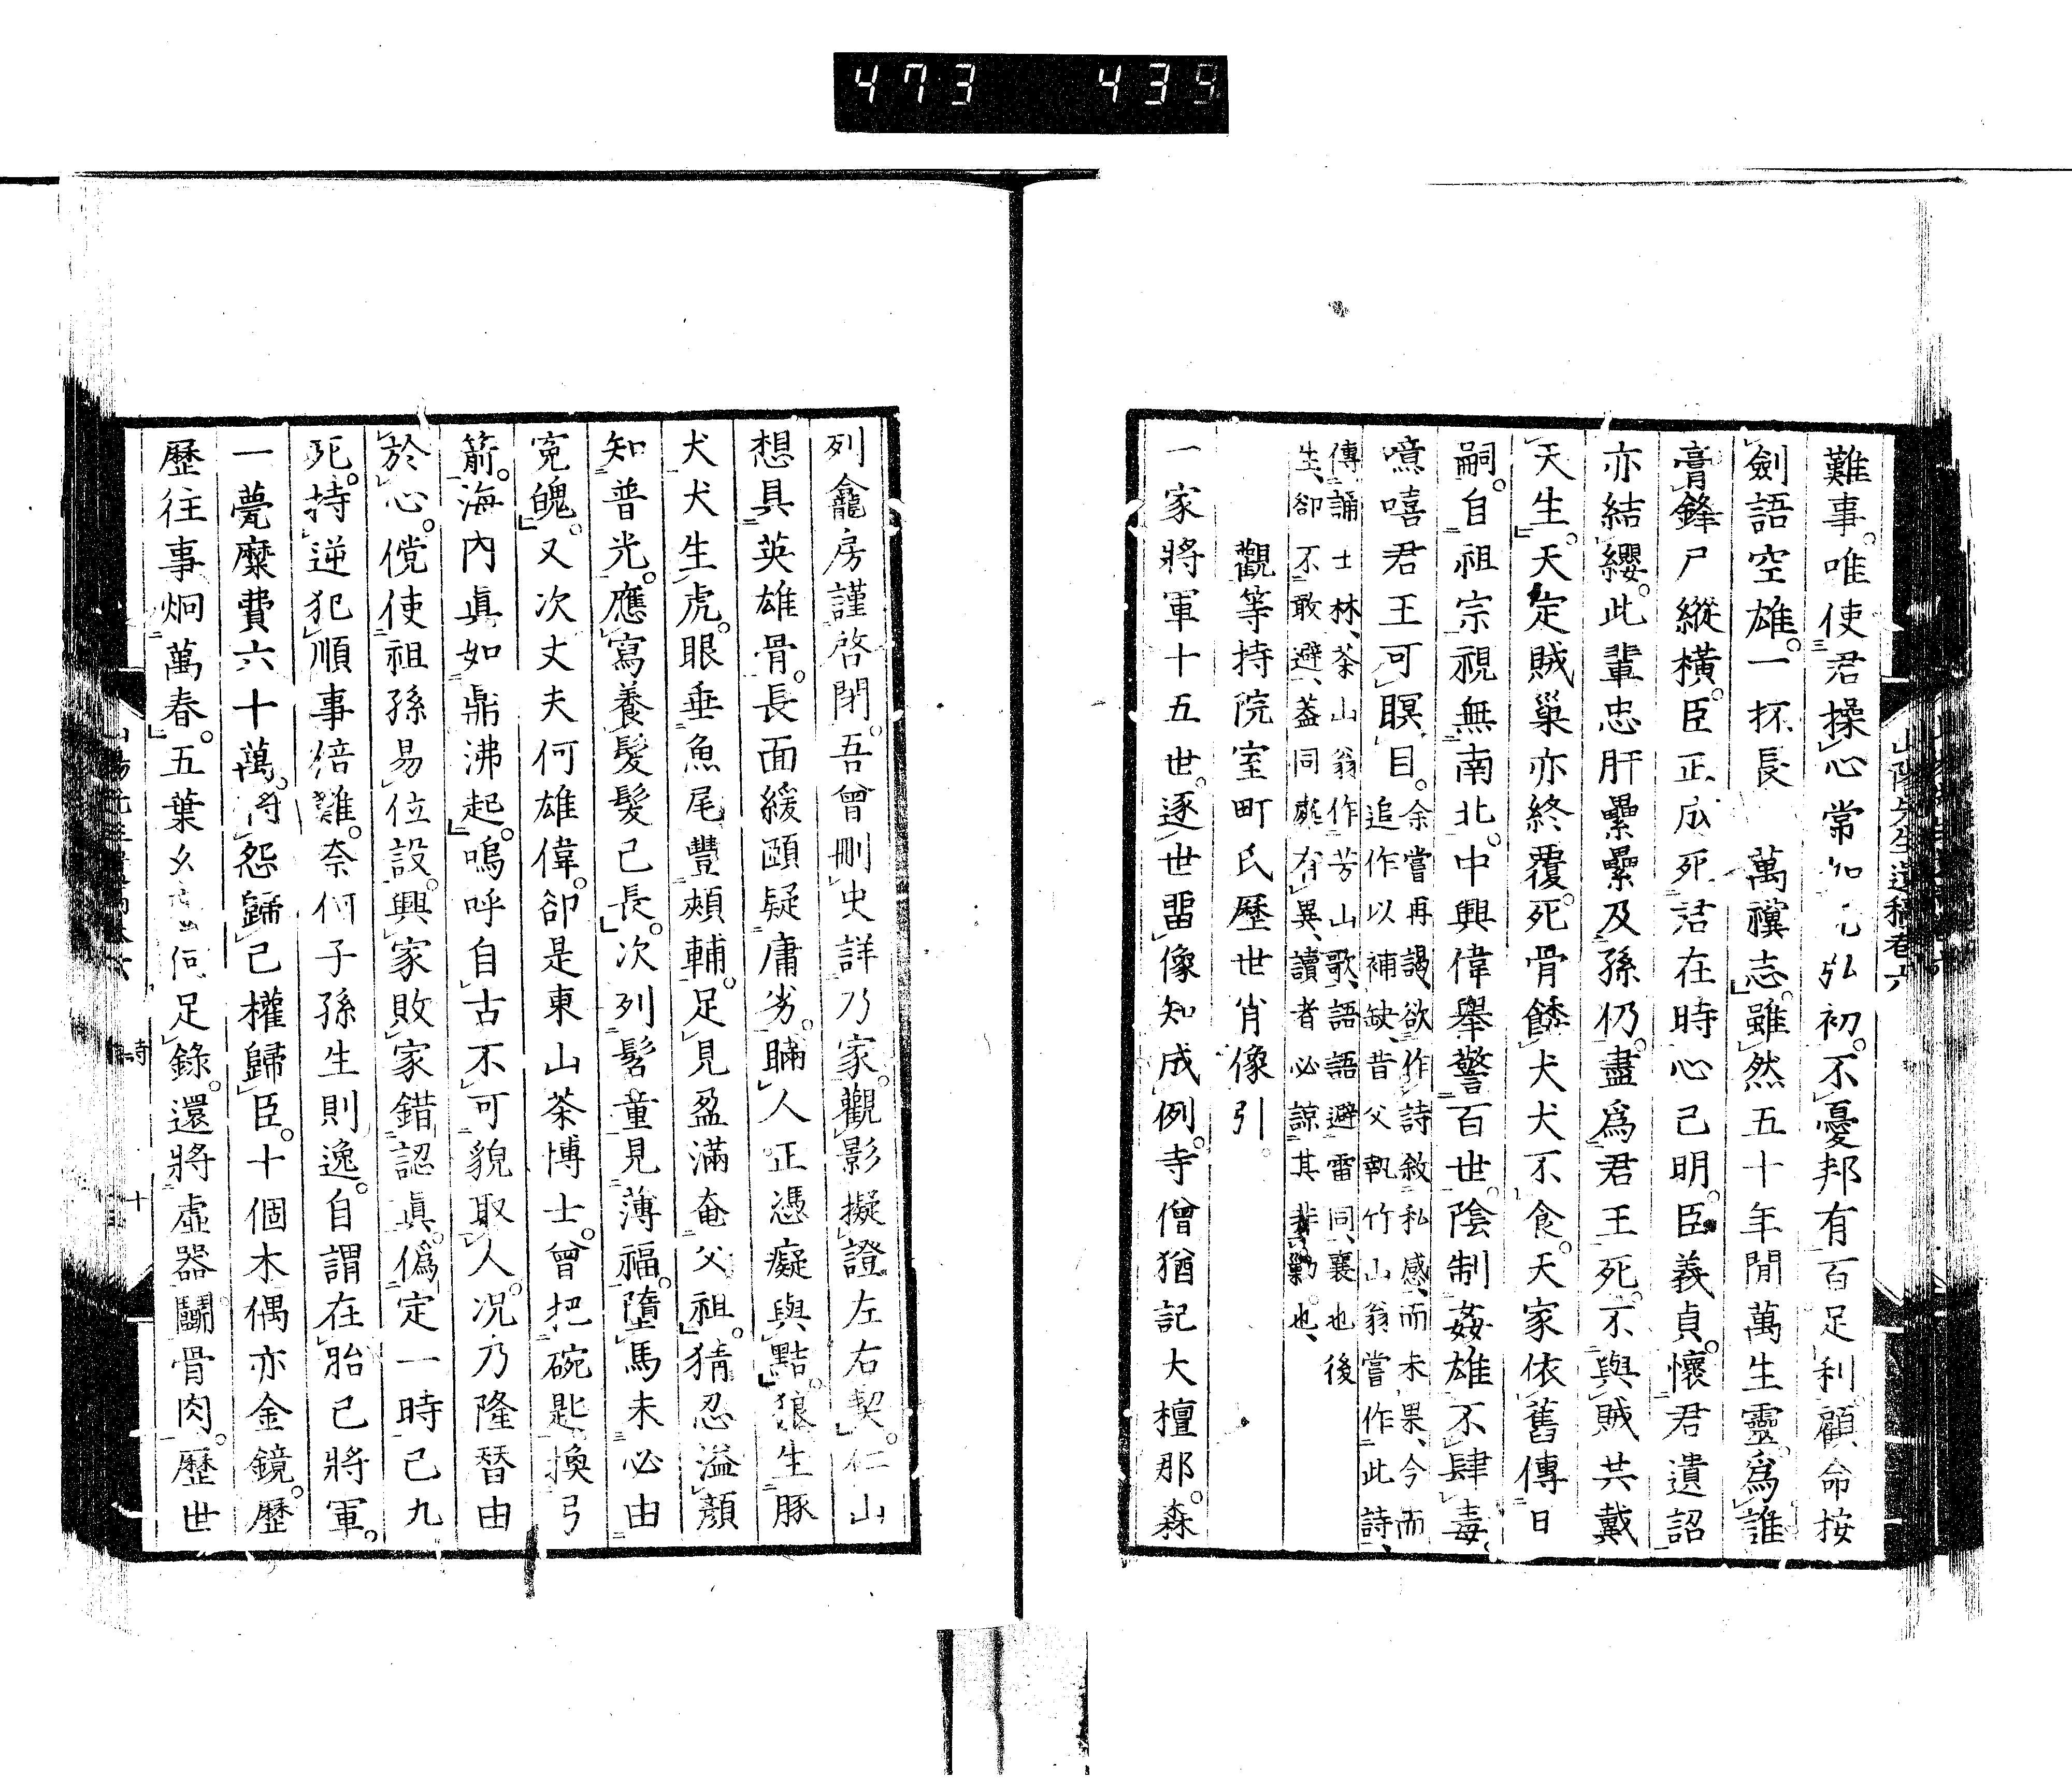 473 439
難事。唯使君操心常如元弘初。不憂邦有百足利顧命按
劍語空雄。一抔長 萬禩志。雖然五十年間萬生靈。爲誰
膏鋒尸縱橫。臣正成死諾在時心已明。臣義貞。懷君遺詔
亦結纓。此輩忠肝纍纍及孫仍。盡爲君王死。不與賊共戴
天生。天定賊巢亦終覆。死骨餧犬犬不食。天家依舊傳日
嗣。自祖宗視無南北。中興偉舉警百世。陰制姦雄不肆毒。
噫嘻君王可瞑目。
余嘗再謁、欲作詩敘私感、而未果、今而
追作以補缺、昔父執竹山翁嘗作此詩、
傳誦士林、茶山翁作芳山歌、語語避雷同、襄也後
生、卻不敢避、蓋同處有異、讀者必諒其 也、
觀等持院室町氏歷世肖像引。
一家將軍十五世。逐世畱像知成例。寺僧猶記大檀那。森
列龕房謹啓閉。吾曾刪史詳乃家。觀影擬證左右契。仁山
想具英雄骨。長面緩頤疑庸劣。瞞人正憑癡與黠。狼生豚
犬犬生虎。眼垂魚尾豐頰輔。足見盈滿奄父祖。猜忍溢顏
知普光。應寫養髮髮已長。次列髫童見薄福。墮馬未必由
冤魄。又次丈夫何雄偉。卻是東山茶博士。曾把碗匙換弓
箭。海內眞如鼎沸起。嗚呼自古不可貌取人。況乃隆替由
於心。儻使祖孫易位設。興家敗家錯認眞。僞定一時已九
死。持逆犯順事倍難。奈何子孫生則逸。自謂在胎已將軍。
一甍糜費六十萬。將怨歸己權歸臣。十個木偶亦金鏡。歷
歷往事炯萬春。五葉 何足錄。還將虛器鬭骨肉。歷世
山陽先生遺稿卷六
詩
十